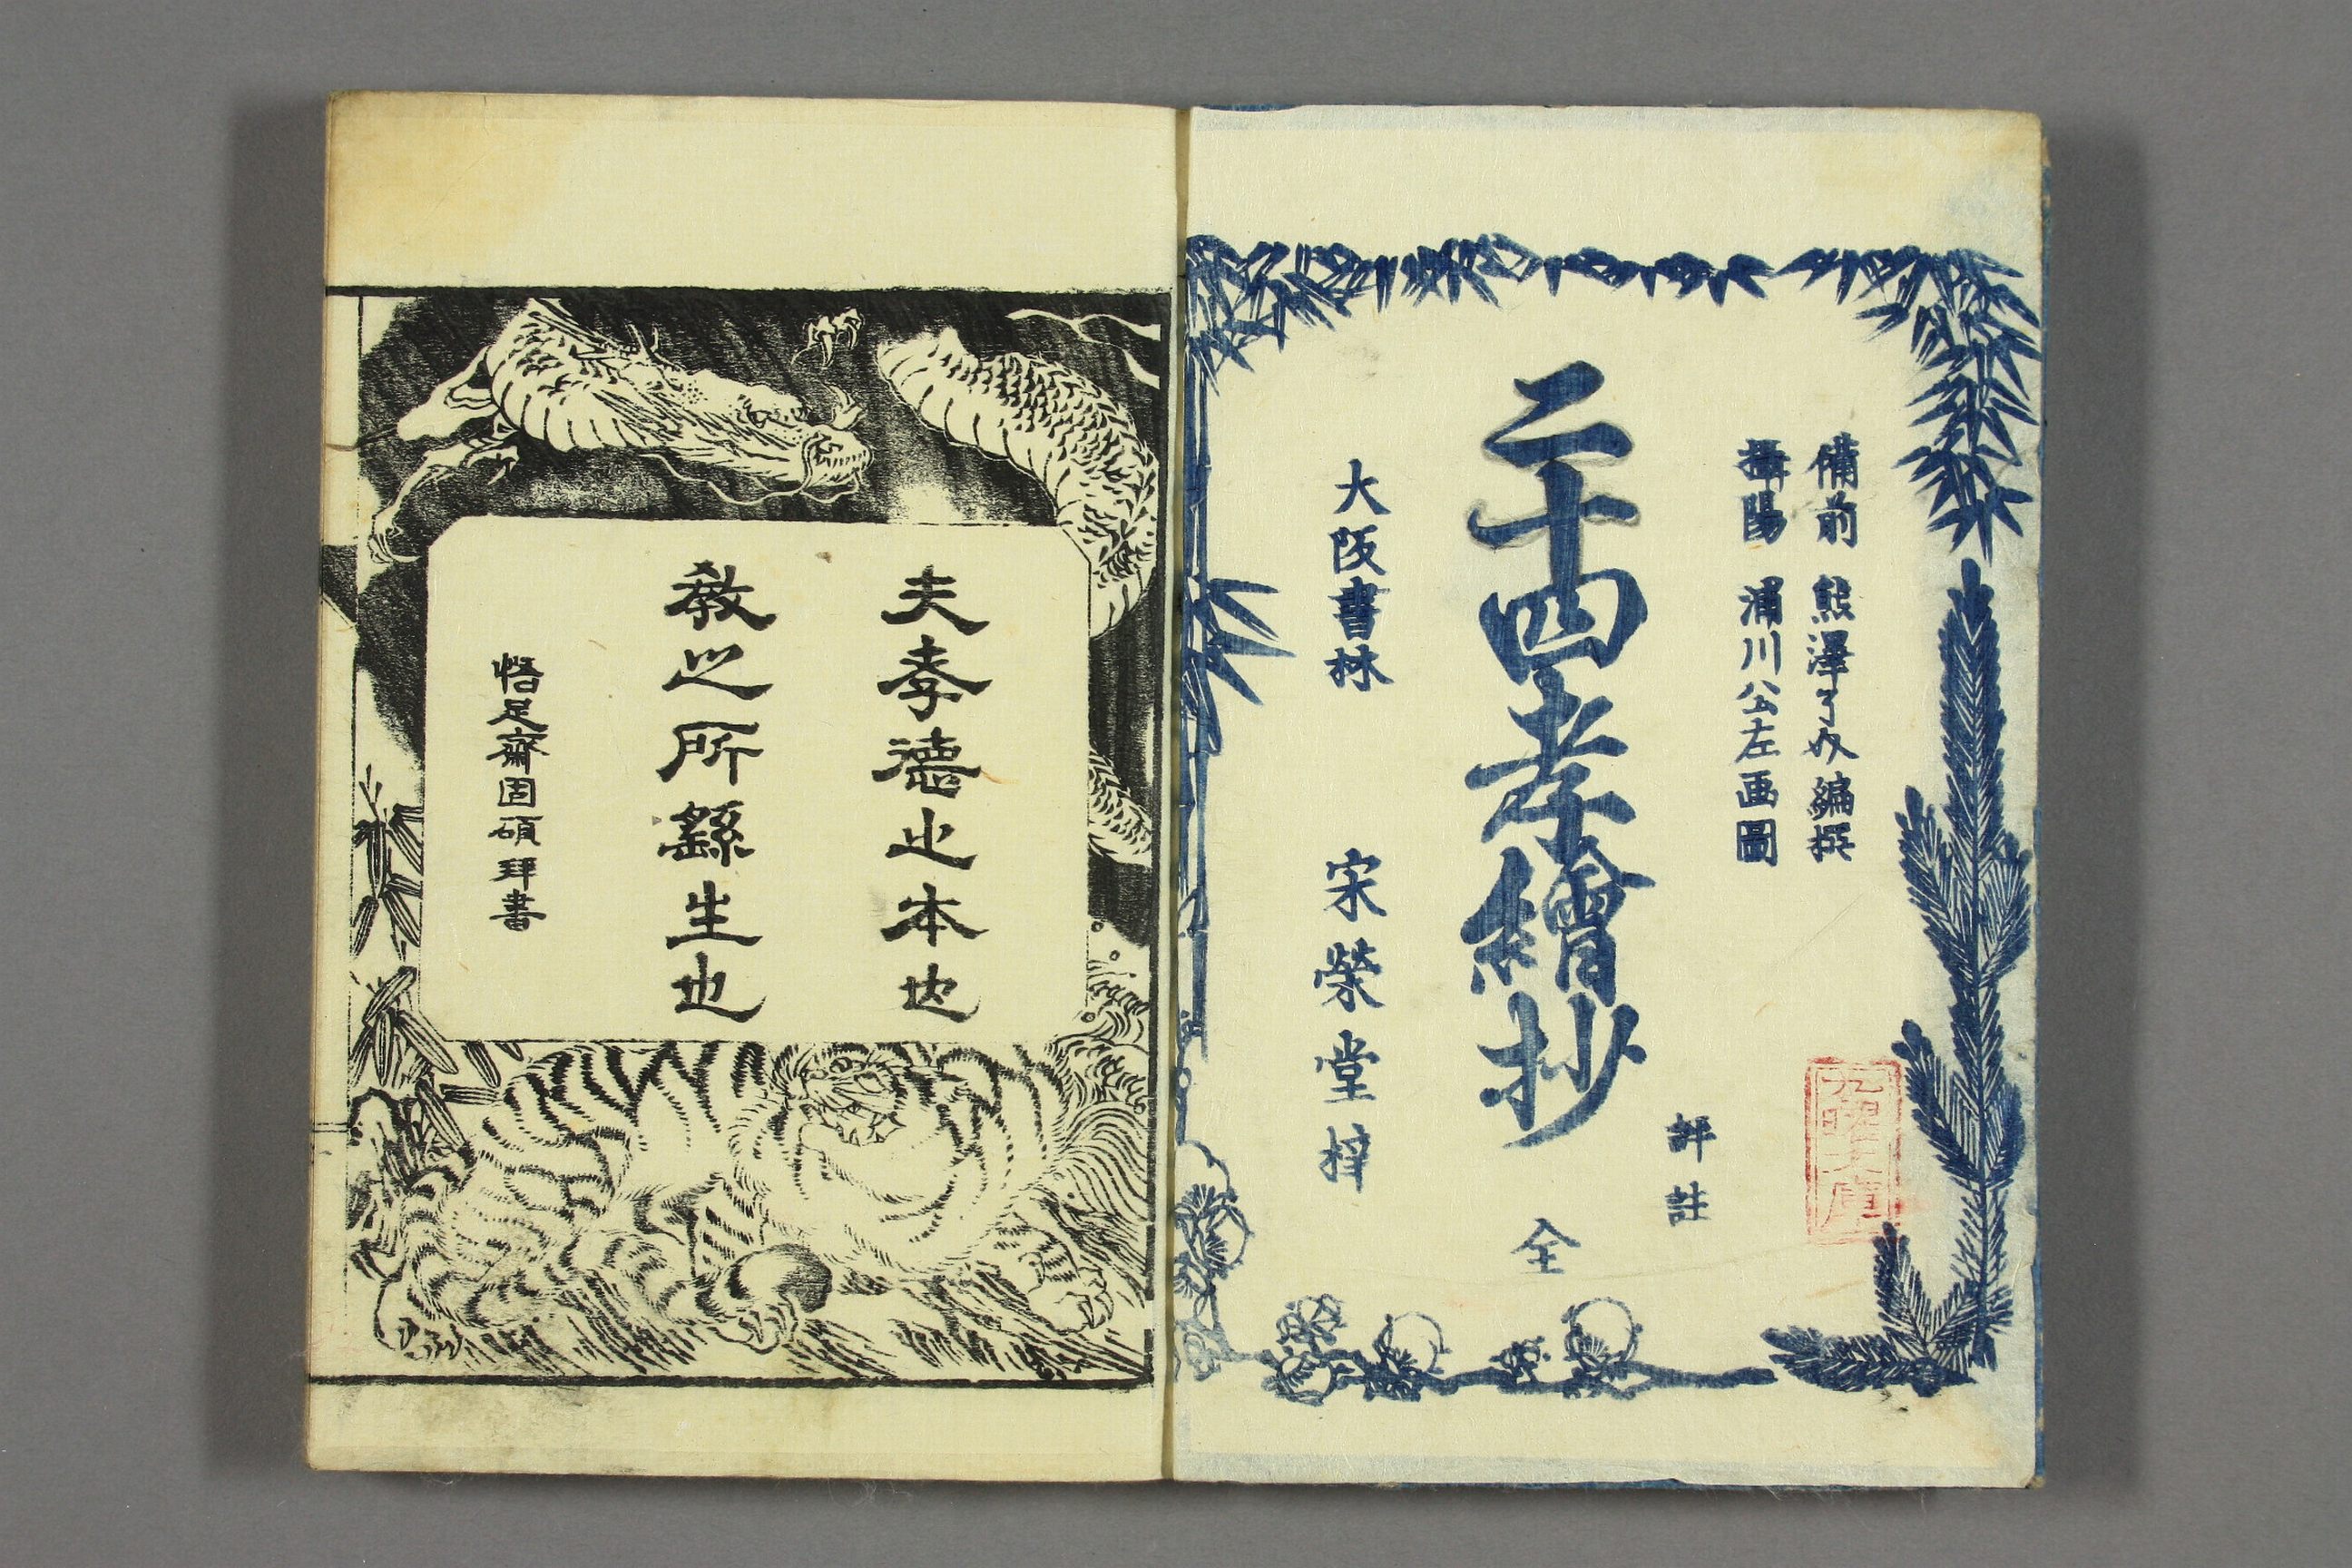 備前 熊澤了介編撰
攝陽 浦川公左画圖
評註
二十四孝繪抄 全
大阪書林 宋榮堂梓
九曜文庫
夫孝德之本也
教之所繇生也
悟足齋固碩拜書